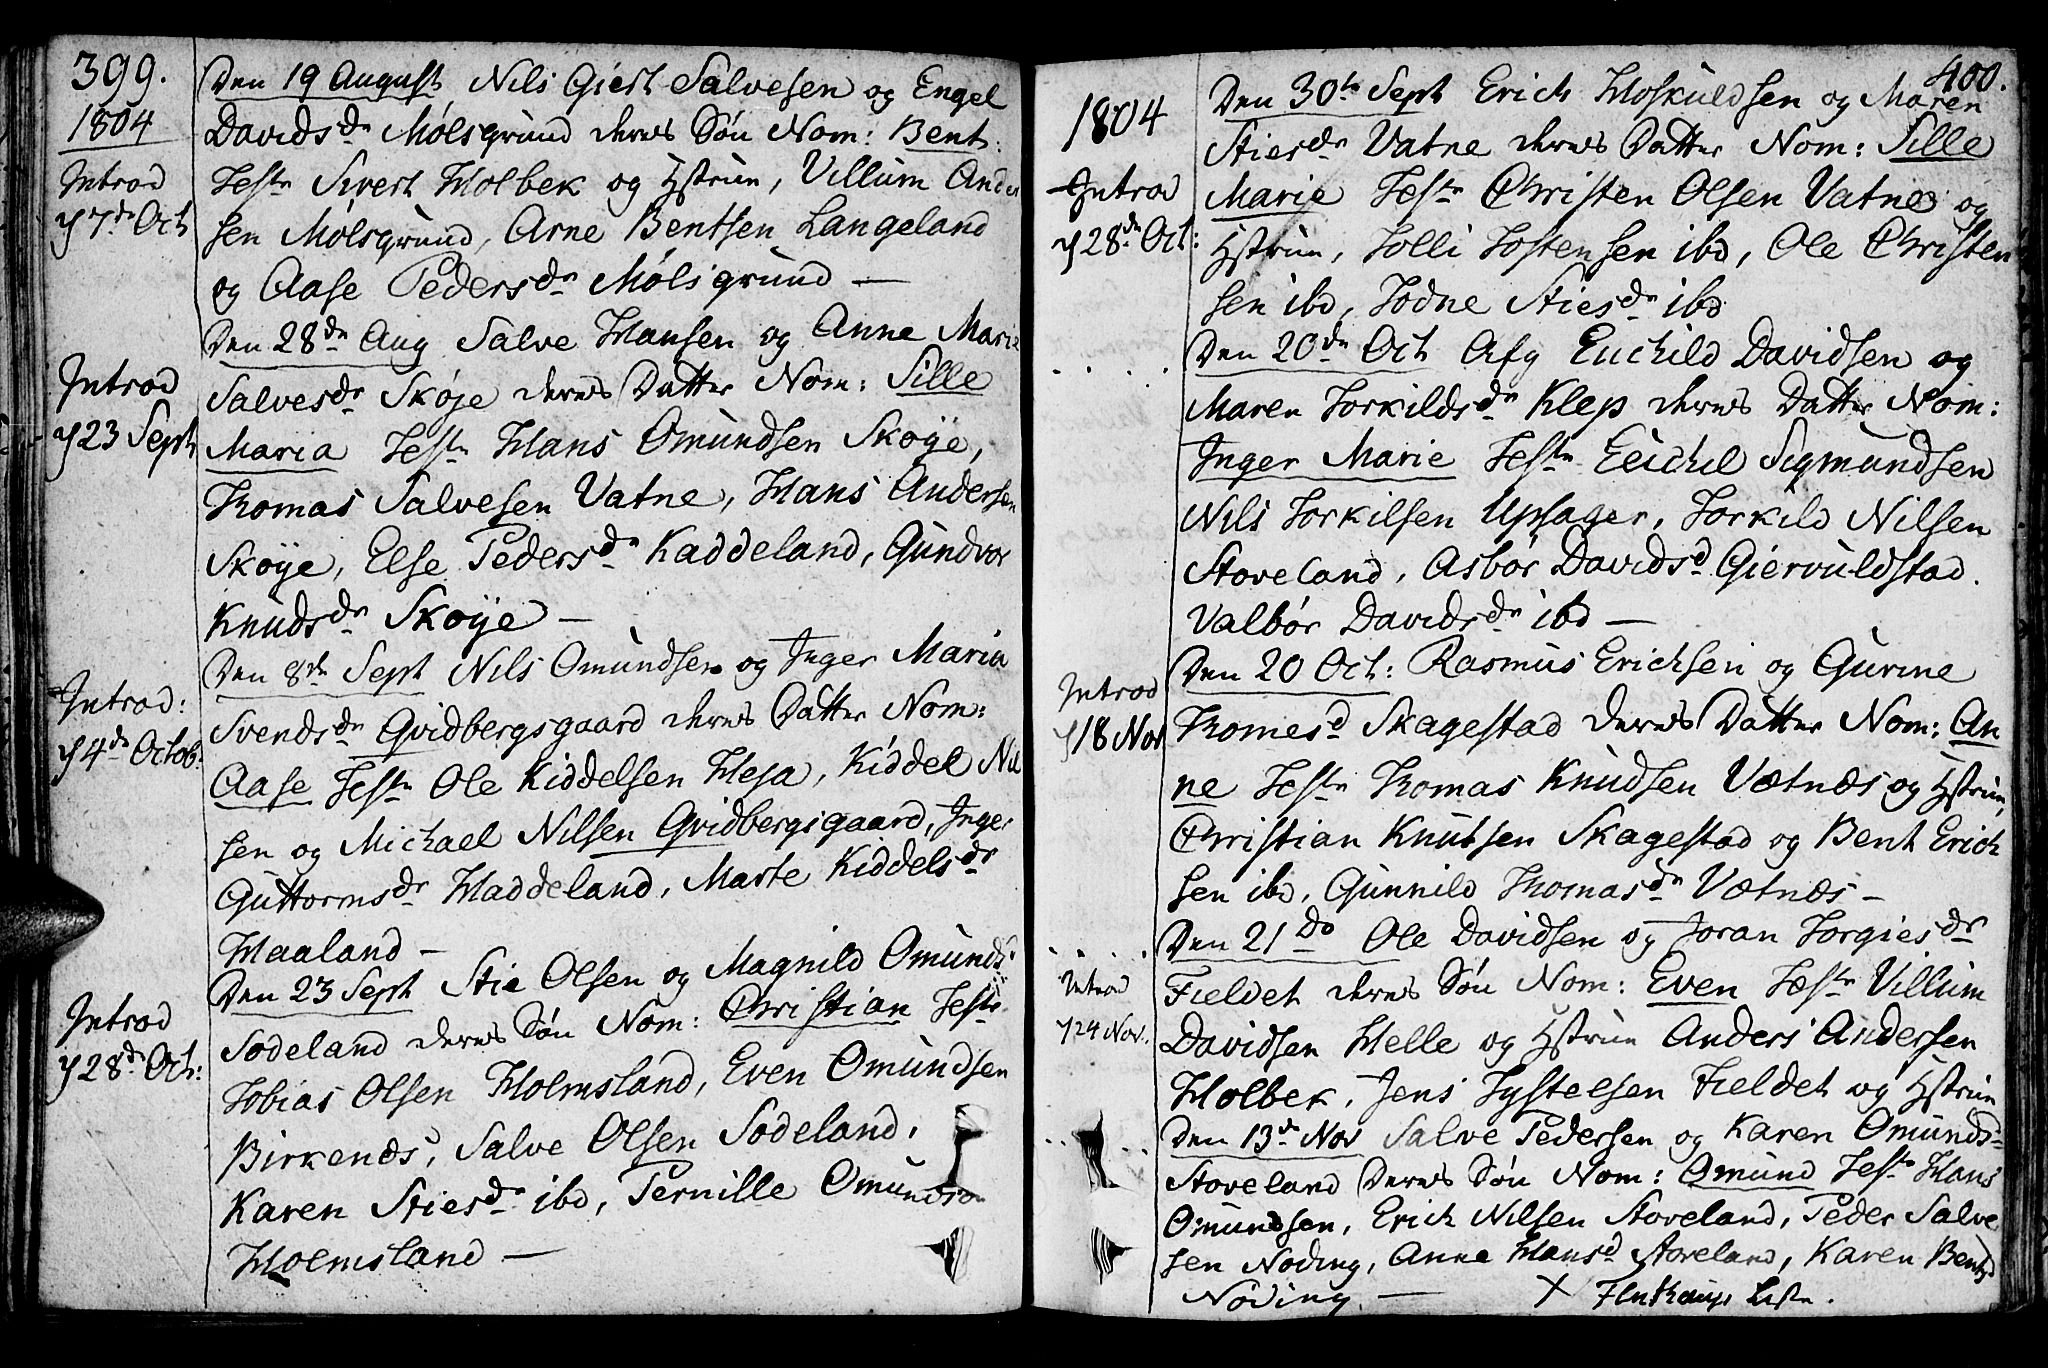 399.
1804
Introd
7de Oct
Den 19 August Nils Giert Salvesen og Engel
Davidsdr Mölsgrund deres Sön Nom: Bent.
Testr Sivert Holbek og Hstrue, Villum Ander
sen Mölsgrund, Arne Bentsen Langeland
og Aase Pedersdr Mölsgrund —
Introd
23 Sept
Den 28de Aug Salve Hansen og Anne Marie
Salvesdr Sköje deres Datter Nom: Sille
Maria Testr Hans Omundsen Sköye,
Thomas Salvesen Vatne, Hans Andersen
Sköye, Else Pedersdr Kaddeland, Gundvor
Knudsdr Sköye —
Introd:
4de Octob:
Den 8de Sept Nils Omundsen og Inger Maria
Svendsdr Qvidbergsgaard deres Datter Nom:
Aase Testr Ole Kiddelsen Heja, Kiddel Nil
sen og Michael Nilsen Qvidbergsgaard, Inger
Guttormsdr Haddeland, Marte Kiddelsdr
Haaland —
Introd
28de Oct:
Den 23 Sept Stie Olsen og Magnild Omunds
Södeland deres Sön Nom: Christian Testr
Tobias Olsen Holmsland, Even Omundsen
Birkenæs, Salve Olsen Södeland,
Karen Stiesdr ibd, Pernille Omundsdr
Holmsland —
400.
1804
Introd
28de Oct:
Den 30te Sept Erich Hoskuldsen og Maren
Stiesdr Vatne deres Datter Nom: Sille
Marie Testr Christen Olsen Vatne og
Hstrue, Tolli Tostensen ibd, Ole Christen
sen ibd, Todne Stiesdr ibd
Den 20de Oct Afg Euchild Davidsen og
Maren Torkildsdr Klep deres Datter Nom:
Inger Marie Testr Eichel Sigmundsen
Nils Torkilsen Upsager, Torkild Nilsen
Stoveland, Asbör Davidsd Giervuldstad.
Valbör Davidsdr ibd —
Introd
18 Nov
Den 20 Oct: Rasmus Erichsen og Gurine
Thomesd Skagestad deres Datter Nom: An
ne Testr Thomas Knudsen Vætnæs og Hstrue,
Christian Knutsen Skagestad og Bent Erich
sen ibd, Gunnild Thomasdr Vætnæs —
Introd
24 Nov.
Den 21do Ole Davidsen og Joran Torgiesdr
Fieldet deres Sön Nom: Even Tæstr Villum
Davidsen Helle og Hstrue Anders Andersen
Holbek, Jens Tystelsen Fieldet og Hstrue
Den 13de Nov Salve Pedersen og Karen Omunds-
Stoveland Deres Sön Nom: Omund Testr Hans
Omundsen, Erich Nilsen Stoveland, Peder Salve
sen Nöding, Anne Hansd Stoveland, Karen Bentsd
Nöding. —